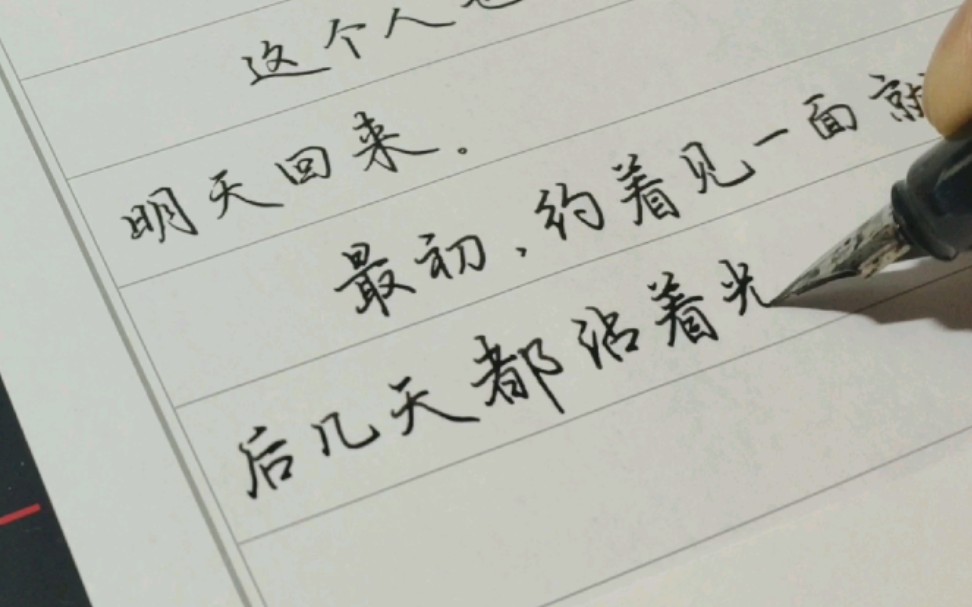 这个人
明天回来。
最初、约着见一面就
后几天都沾着光